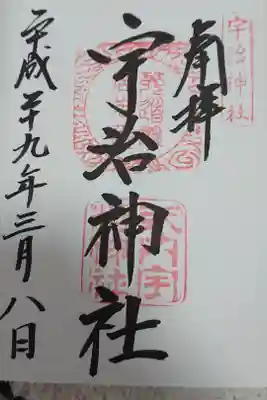 宇治神社
奉拝
宇治神社
平成二十九年三月八日